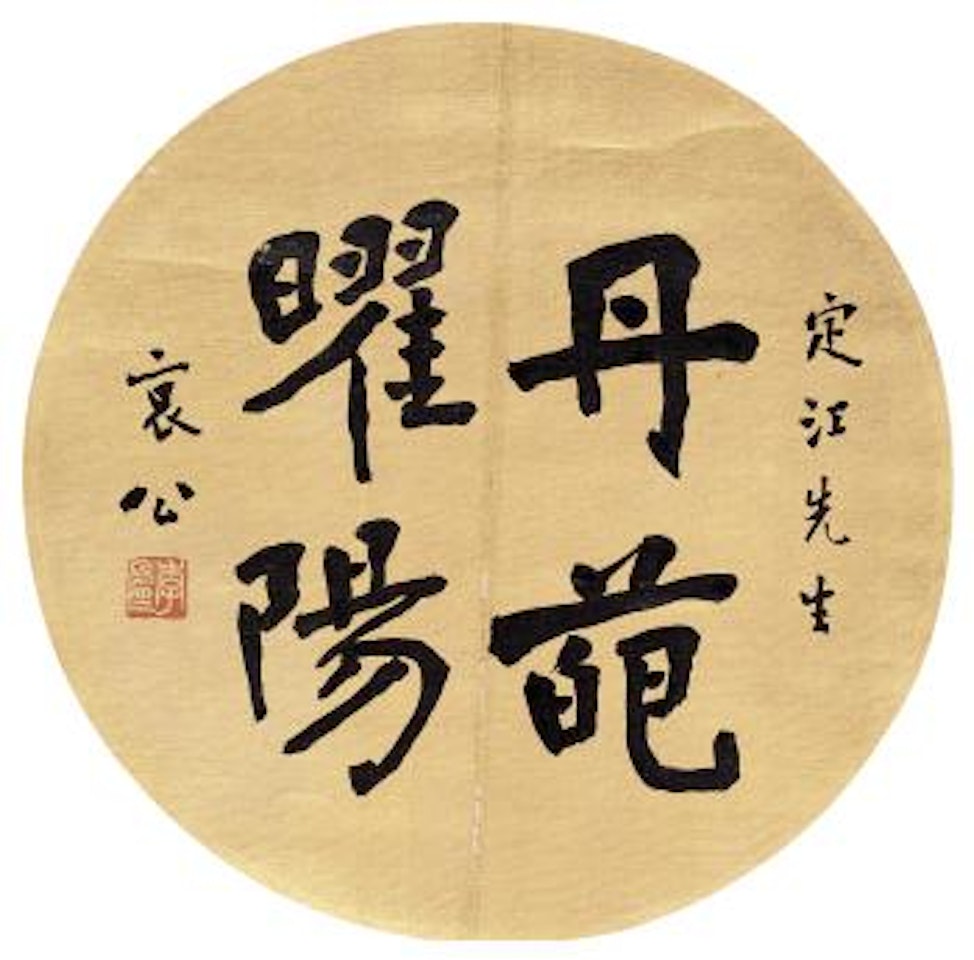 定江先生
丹葩
曜陽
哀公